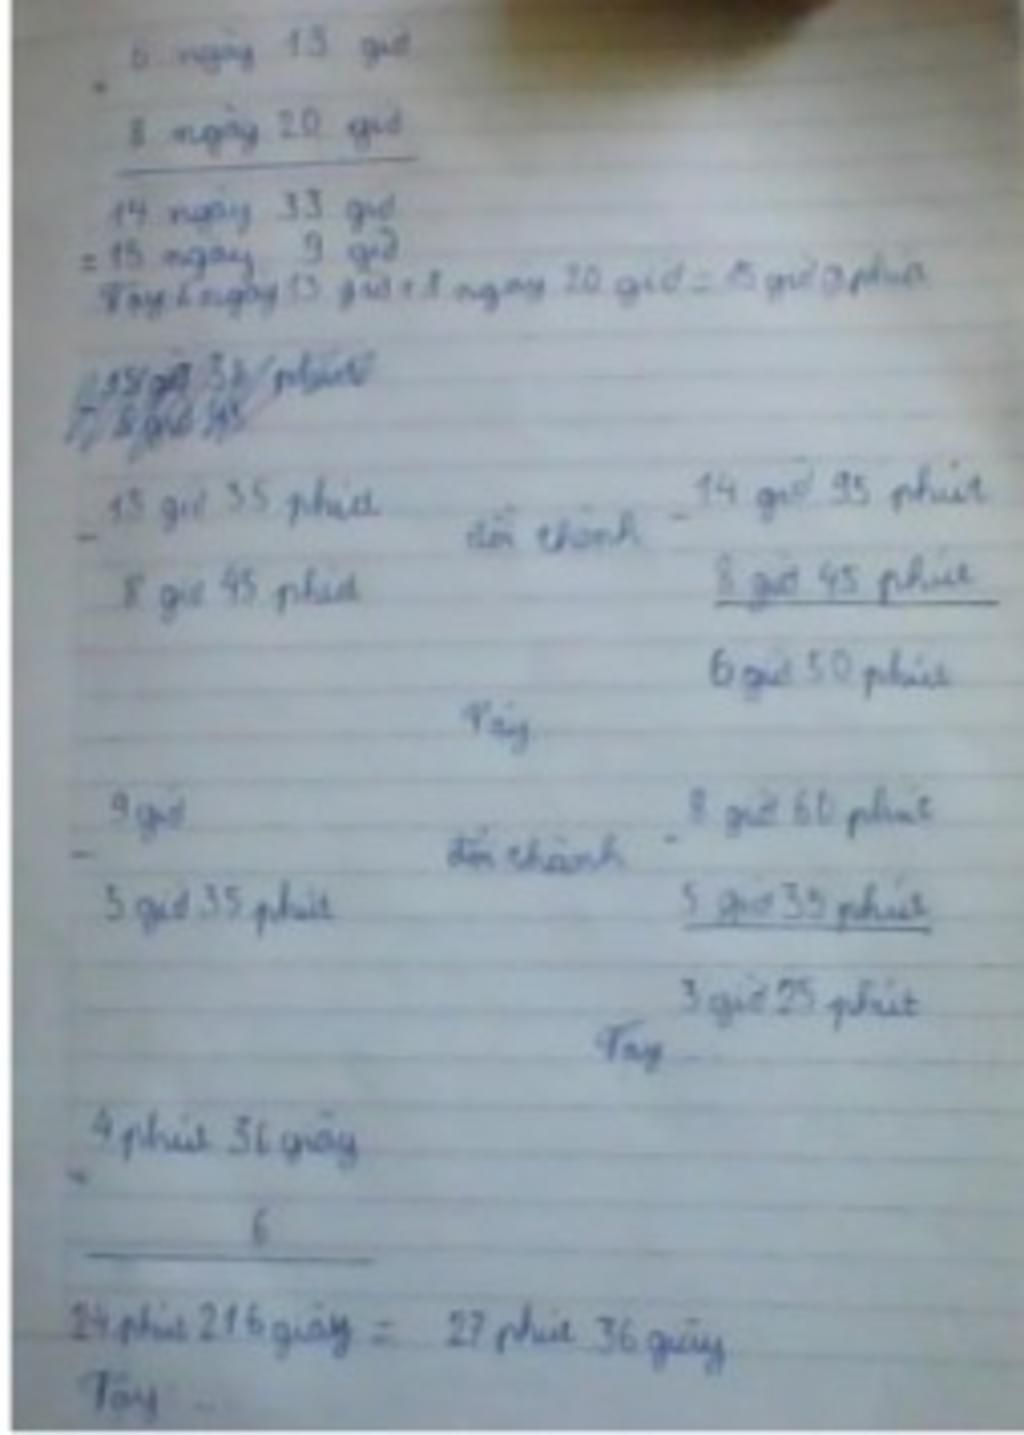 6 ngày 13 giờ
+
8 ngày 20 giờ
14 ngày 33 giờ
= 15 ngày 9 giờ
Vậy 6 ngày 13 giờ + 8 ngày 20 giờ = 15 giờ 9 phút
15 giờ 35 phút
8 giờ 45
15 giờ 35 phút đổi thành - 14 giờ 95 phút
-
8 giờ 45 phút 8 giờ 45 phút
6 giờ 50 phút
Vậy
9 giờ đổi thành - 8 giờ 60 phút
-
5 giờ 35 phút 5 giờ 35 phút
3 giờ 25 phút
Vậy ...
4 phút 36 giây
×
6
24 phút 216 giây = 27 phút 36 giây
Vậy ...